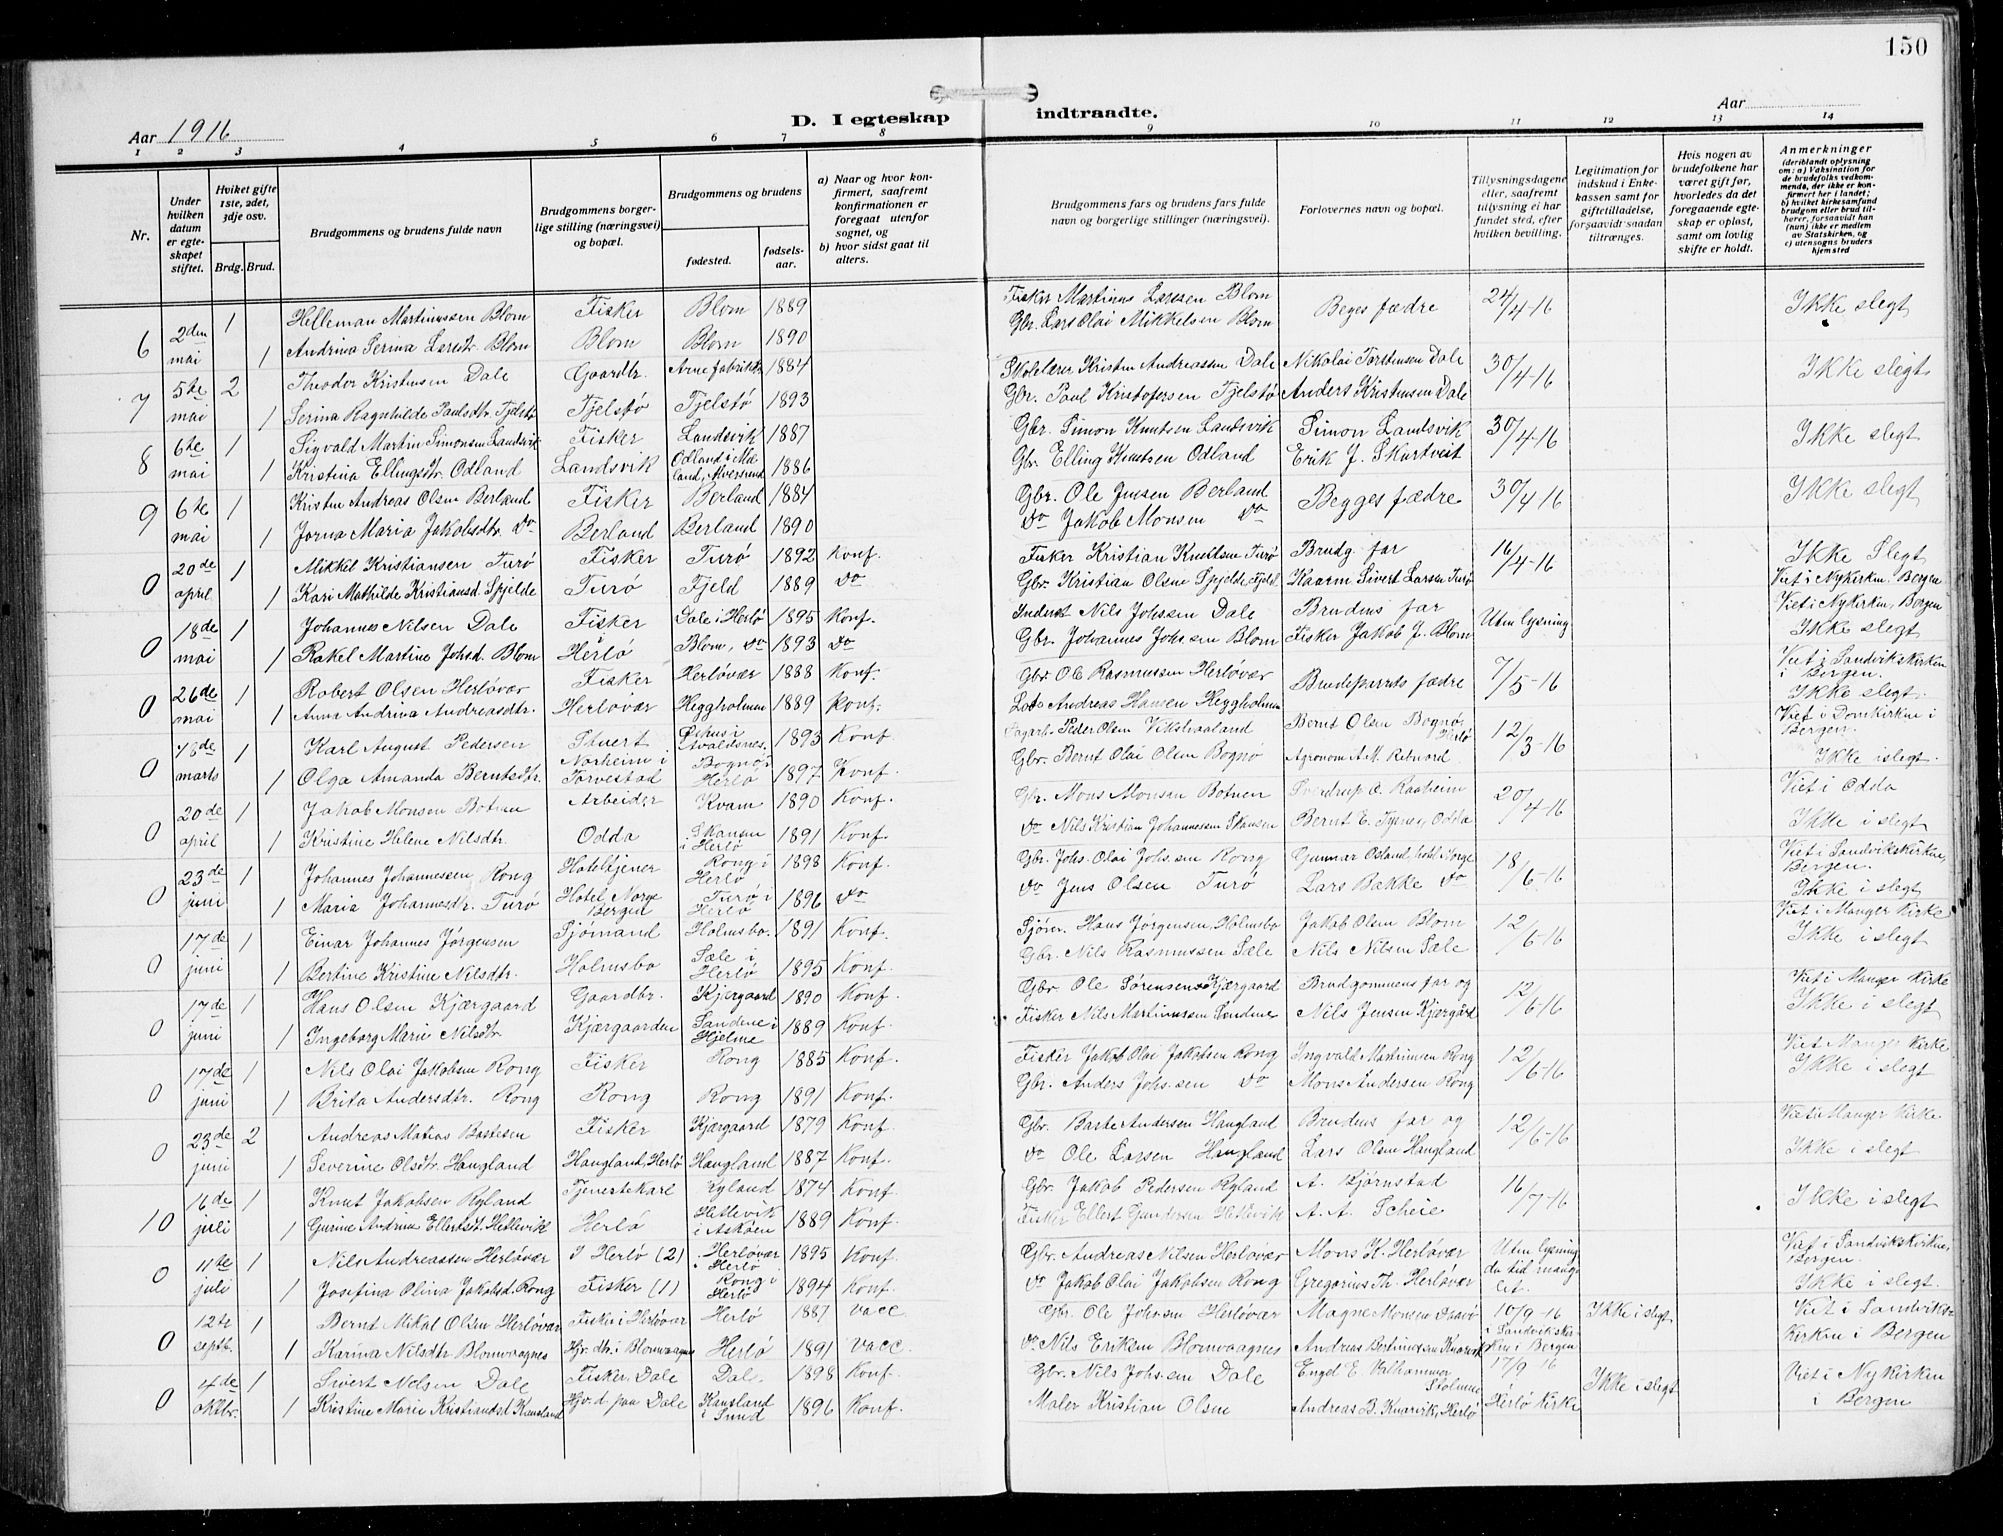 150
D. I egteskap indtraadte.
Aar 1916
Aar
1 2 3 4 5 6 7 8 9 10 11 12 13 14
Nr.
Under hvilken datum er egteskapet stiftet.
Hviket gifte 1ste, 2det, 3dje osv.
Brdg. Brud.
Brudgommens og brudens fulde navn
Brudgommens borgerlige stilling (næringsvei) og bopæl.
Brudgommens og brudens
fødested. fødselsaar.
a) Naar og hvor konfirmert, saafremt konfirmationen er foregaat utenfor sognet, og
b) hvor sidst gaat til alters.
Brudgommens fars og brudens fars fulde navn og borgerlige stillinger (næringsvei).
Forlovernes navn og bopæl.
Tillysningsdagene eller, saafremt tillysning ei har fundet sted, efter hvilken bevilling.
Legitimation for indskud i Enkekassen samt for giftetilladelse, forsaavidt saadan tiltrænges.
Hvis nogen av brudefolkene har været gift før, hvorledes da det foregaaende egteskap er opløst, samt om lovlig skifte er holdt.
Anmerkninger
(deriblandt oplysning om: a) Vaksination for de brudefolks vedkommende, der ikke er konfirmert her i landet; b) hvilket kirkesamfund brudgom eller brud tilhører, forsaavidt han (hun) ikke er medlem av Statskirken, og c) utensogns bruders hjemsted
6 2den mai 1 Helleman Martinussen Blom Fisker Blom 1889 Fisker Martinus Larssen Blom Beges fædre 24/4-16 Ikke slegt
1 Andrina Serina Larsdtr. Blom Blom Blom 1890 Gbr. Lars Olai Mikkelsen Blom
7 5te mai 2 Theodor Kristensen Dale Gaardbr. Arne fabrikker 1884 Skolelærer Kristen Andreassen Dale Nikolai Torstensen Dale 30/4-16 Ikke slegt
1 Serina Ragnhilde Paulsdtr. Tjelstø Tjelstø Tjelstø 1893 Gbr. Paul Kristofersen Tjelstø Anders Kristensen Dale
8 6te mai 1 Sigvald Martin Simonsen Landsvik Fisker Landsvik 1887 Gbr. Simon Knutsen Landsvik Simon Landsvik 30/4-16 Ikke slegt
1 Kristina Ellingsdtr. Odland Landsvik Odland i Mæland, Alversund 1886 Gbr. Elling Knutsen Odland Erik J. Skurtveit
9 6te mai 1 Kristen Andreas Olsen Berland Fisker Berland 1884 Gbr. Ole Jensen Berland Begges fædre 30/4-16 Ikke slegt
1 Jorna Maria Jakobsdtr. Do Berland Berland 1890 Do Jakob Monsen Do
0 20de april 1 Mikkel Kristiansen Turø Fisker Turø 1892 Konf. Fisker Kristian Knutsen Turø Brudg. far 16/4-16 Ikke Slegt
1 Kari Mathilde Kristiansd Spjelde Turø Fjeld 1889 Do Gbr. Kristian Olsen Spjelde Fjeld Kaarm Sivert Larsen Turø Viet i Nykirken. Bergen
0 18de mai 1 Johannes Nilsen Dale Fisker Dale i Herlø 1895 Konf. Inderst Nils Johssen Dale Brudens far Uten lysning Viet i Nykirken, Bergen
1 Rakel Martine Johsd. Blom Herlø Blom, Do 1893 Do Gbr. Johannes Johssen Blom Fisker Jakob J. Blom Ikke slegt
0 26de mai 1 Robert Olsen Herløvær Fisker Herløvær 1888 Konf. Gbr. Ole Rasmussen Herløvær Brudeparrets fædre 7/5-16 Viet i Sandvikskirken i Bergen.
1 Anna Andrina Andreasdtr. Herløvær Heggholmen 1889 Konf. Lods Andreas Hansen Heggholmen Ikke slegt.
0 18de marts 1 Karl August Pedersen Stuert Avaldsnes. 1893 Konf Peder Olsen Bernt Olsen Bognø, Herlø 12/3-16 Viet i Domkirken i Bergen.
1 Olga Amanda Berntsdtr. Norheim i Torvestad Bognø, Herlø 1897 Konf. Gbr. Bernt Olai Olsen Bognø Agronom A. M. Ikke i slegt.
0 20de april 1 Jakob Monsen Botnen Arbeider Kvam 1890 Konf. Gbr. Mons Monsen Botnen Sverdrup O. Raaheim 20/4-16 Viet i Odda
1 Kristine Helene Nilsdtr. Odda Skansen i Herlø 1891 Konf. Do Nils Kristian Johannessen Skansen Bernt E. Tysnes, Odda Ikke i slegt
0 23de juni 1 Johannes Johannessen Rong Hoteltjener Rong i Herlø 1898 Konf. Gbr. Johs. Olai Johssen Rong Gunnar Osland, hotel Norge 18/6-16 Viet i Sandvikskirken, Bergen.
1 Maria Johannesdtr. Turø Hotel Norge Bergen Turø i Herlø 1896 Do Do Jens Olsen Turø Lars Bakke Do Ikke i slegt
0 17de juni 1 Einar Johannes Jørgensen Sjømand Holmsbo. 1891 Konf. Sjøm. Hans Jørgensen, Holmsbo Jakob Olsen Blom 12/6-16 Viet i Manger Kirke
1 Bertine Kristine Nilsdtr. Holmsbo Sæle i Herlø 1895 Konf. Gbr. Nils Rasmussen Sæle Nils Nilsen Sæle Ikke i slegt
0 17de juni 1 Hans Olsen Kjærgaard Gaardbr. Kjærgaard 1890 Konf. Gbr. Ole Sørensen Kjærgaard Brudgommens far og 12/6-16 Viet i Manger Kirke
1 Ingeborg Marie Nilsdtr. Kjærgaarden Sandene i Hjelme 1889 Konf. Fisker Nils Martinussen Sandene Nils Jensen Kjærgård Ikke i slegt
0 17de juni 1 Nils Olai Jakobsen Rong Fisker Rong 1885 Konf. Fisker Jakob Olai Jakobsen Rong Ingvald Martinusen Rong 12/6-16 Viet Manger Kirke
1 Brita Andersdtr. Rong Rong Rong 1891 Konf. Gbr. Anders Johssen Do Mons Andersen Rong Ikke i slegt
0 23de juni 2 Andreas Matias Bastesen Fisker Kjærgaard 1879 Konf. Gbr. Baste Andersen Haugland Brudens far og 12/6-16 Viet i Manger Kirke
1 Severine Olsdtr. Haugland Haugland, Herlø Haugland 1887 Konf. Do Ole Larsen Haugland Lars Olsen Haugland Ikke i slegt
10 16de juli 1 Knut Jakobsen Ryland Tjenestekarl Ryland 1874 Konf. Gbr. Jakob Pedersen Ryland A. Bjørnstad 16/7-16 Ikke i slegt
1 Gurine Andrine Ellertsdt. Hetlevik Herlø Hetlevik i Askøen 1889 Konf. Fisker Ellert Gundersen Hetlevik A. A. Scheie
0 11te juli 1 Nils Andreassen Herløvær I Herlø (2) Herløvær i Herlø 1895 Konf. Gbr. Andreas Nilsen Herløvær Mons K. Herløvær Uten lysning da tid manglet. Viet i Sandvikskirken, Bergen.
1 Josefina Olina Jakobsd. Rong Fisker (1) Rong i Herlø 1894 Konf. Do Jakob Olai Jakobsen Rong Gregorius Th. Herløvær Ikke i slegt.
0 12te septb. 1 Bernt Mikal Olsen Herløvær Fisker i Herløvær Herlø 1887 Vacc Gbr. Ole Johssen Herløvær Magne Monsen 10/9-16 i Sandvikskirken i Bergen Ikke i slegt Viet i Sandvikskirken i Bergen
1 Karina Nilsdtr. Blomvaagnes Hjv. dtr. i Blomvaagnes Herlø 1891 Vacc. Do Nils Eriksen Blomvaagnes Andreas Bertinussen Knarvik
0 4de oktbr. 1 Sivert Nelsen Dale Fisker, Dale Dale 1898 Konf. Gbr. Nils Johssen Dale Engel E. Valhammer 17/9 16 Herlø Kirke Ikke i slegt Viet i Nykirken i Bergen
1 Kristine Marie Kristiansd Kausland Hjv. d. paa Dale Kausland i Sund 1896 Konf. Maler Kristian Olsen Andreas B. Knarvik, Herlø